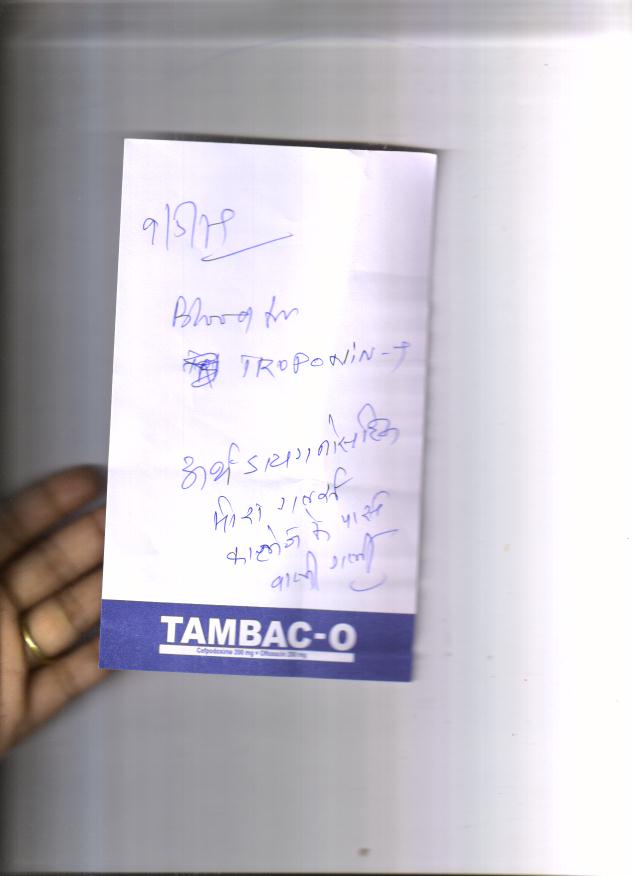 Blood for
TROPONIN-T
अर्थ डायगनोसटिक
मीरा गर्ल्स
कालेज के पास
वाली गली
TAMBAC-O
Cefpodoxime 200 mg + Ofloxacin 200 mg